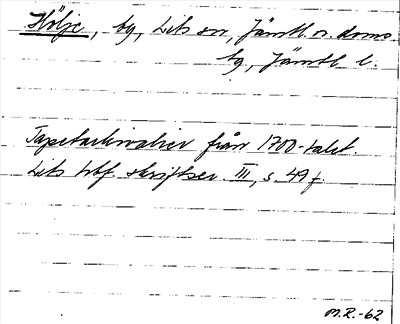 Hölje, by, Lits sn, Jämtl. n. doms.
by, Jämtl. l.
Tapetarkivalier från 1700-talet.
Lits hbf. skriftser. III, s. 49 f.
M.R.-62